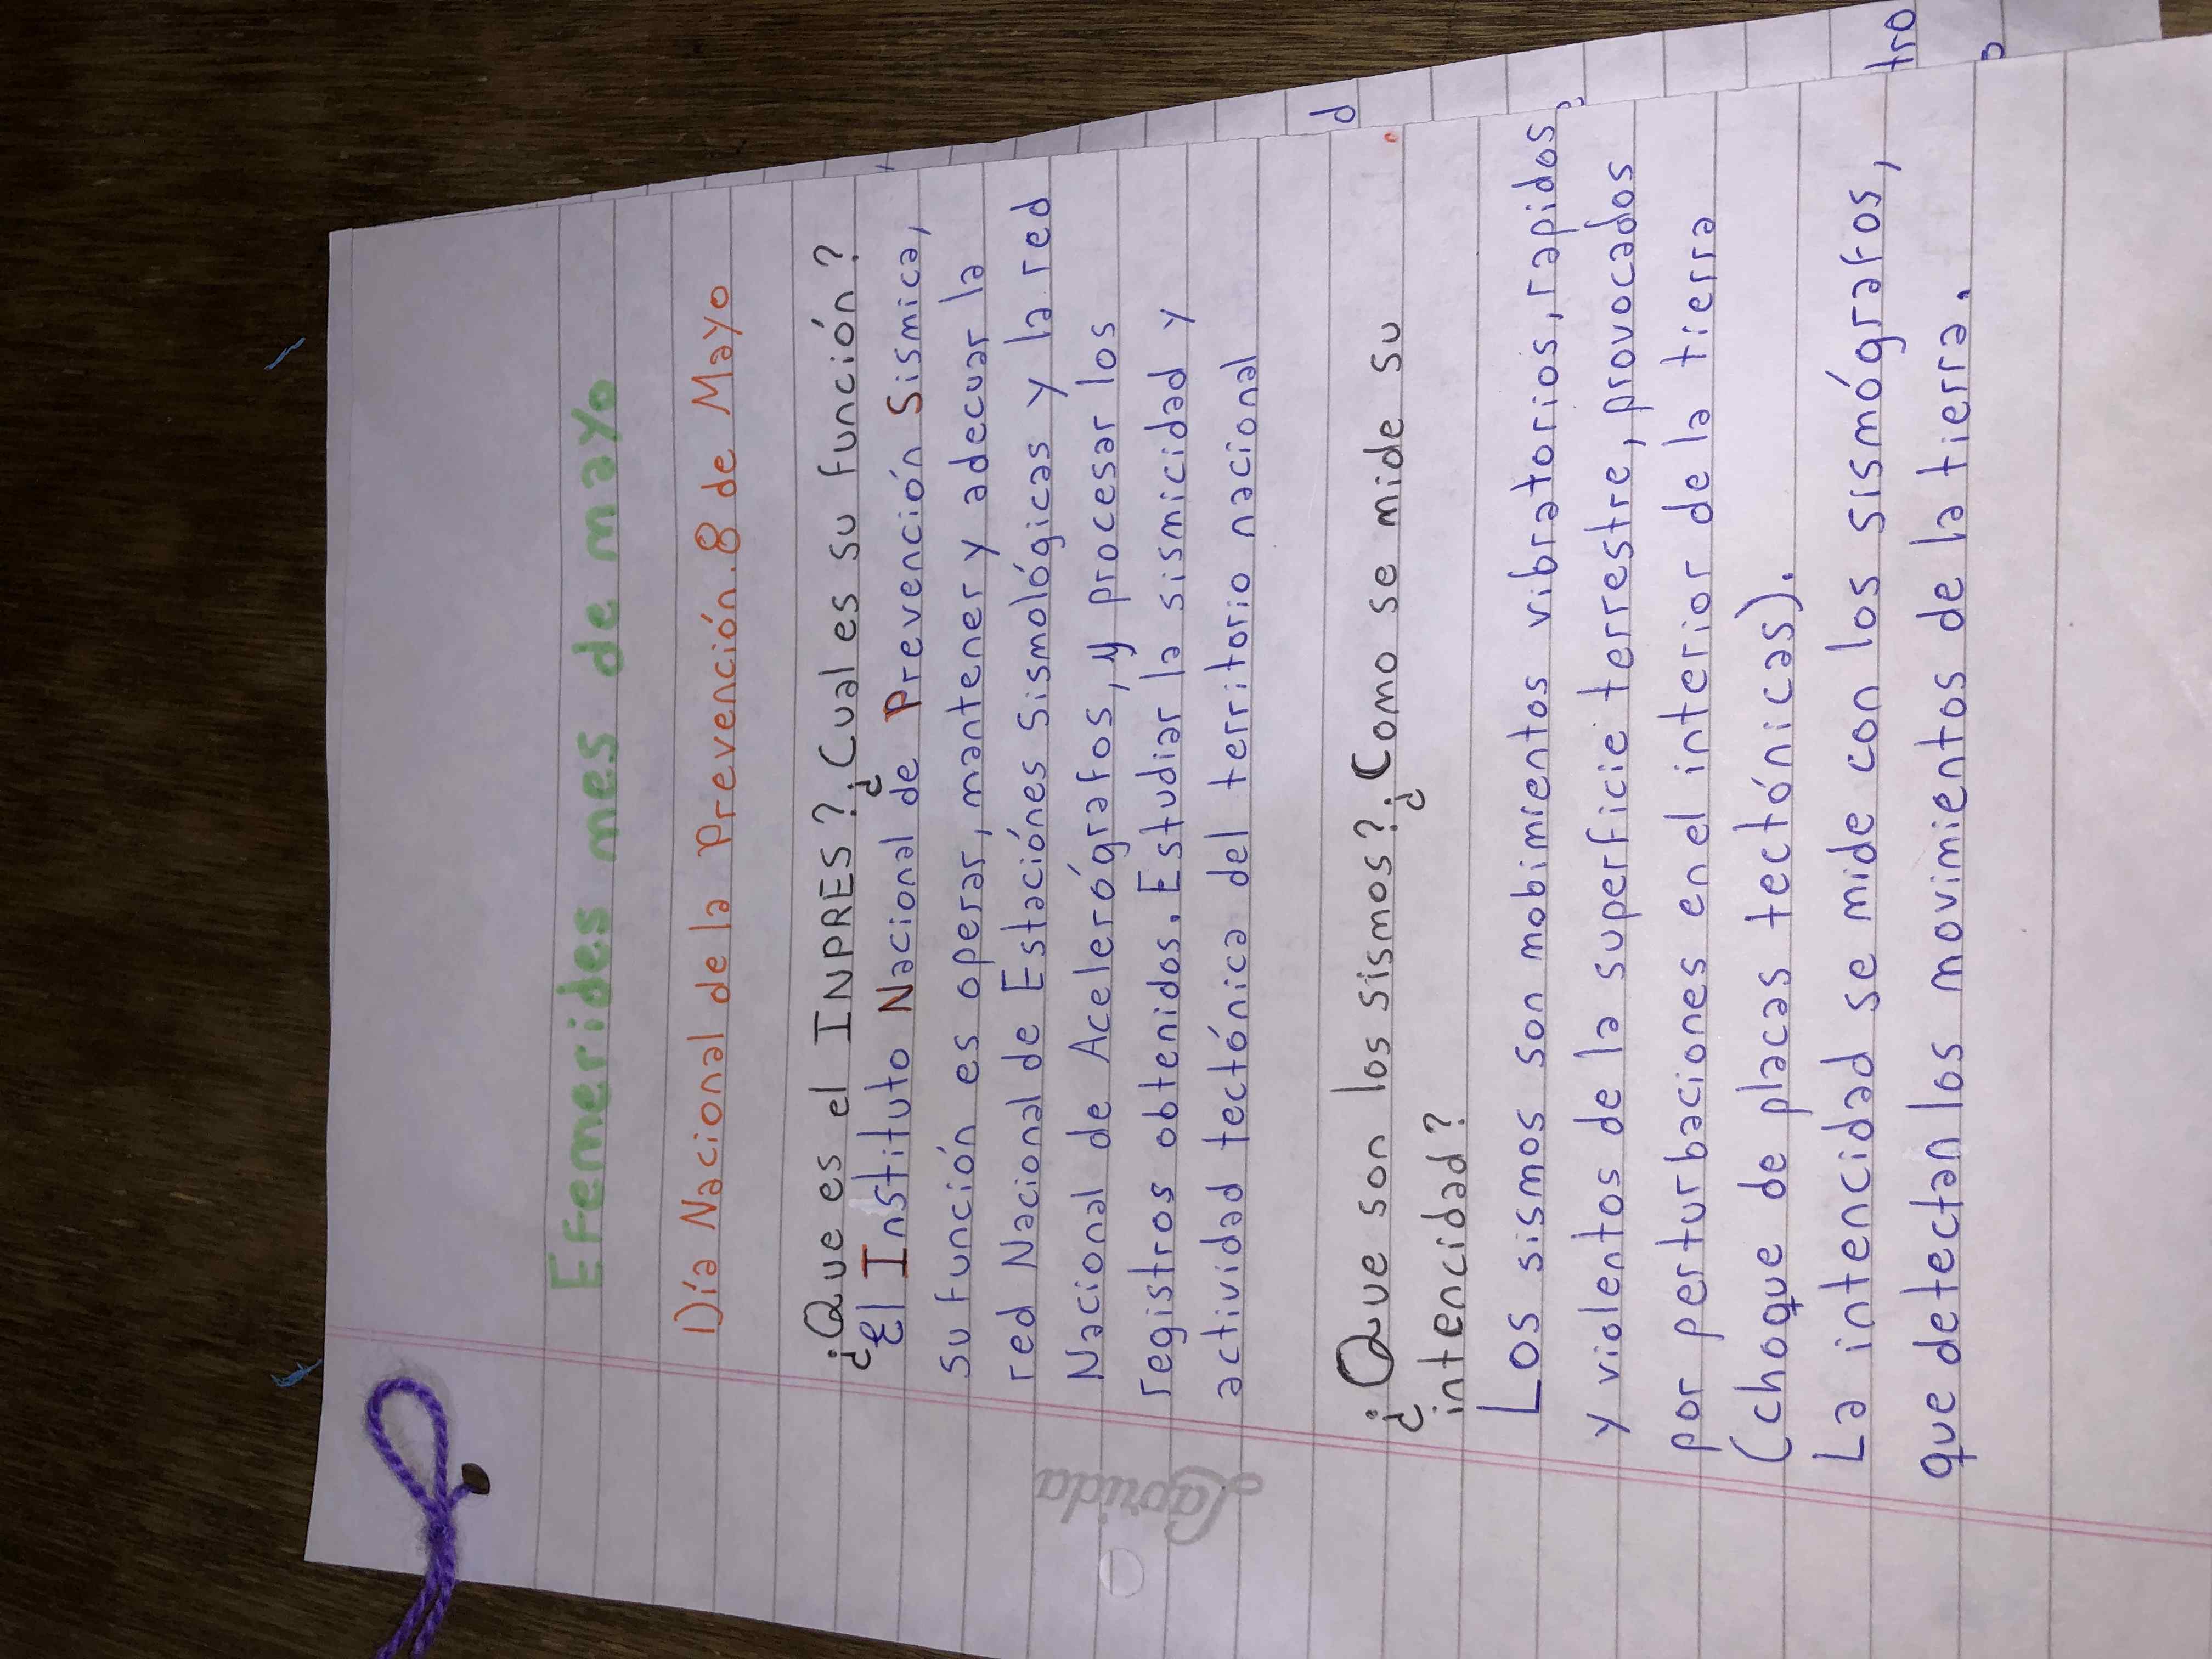 Efemerides mes de mayo
Día Nacional de la Prevención. 8 de Mayo
¿Que es el INPRES? ¿Cual es su función?
El Instituto Nacional de Prevención Sismica,
su función es operar, mantener y adecuar la
red Nacional de Estaciónes Sismológicas y la red
Nacional de Acelerógrafos, y procesar los
registros obtenidos. Estudiar la sismicidad y
actividad tectónica del territorio nacional
¿Que son los sismos? ¿Como se mide su
intencidad?
Los sismos son mobimientos vibratorios, rapidos
y violentos de la superficie terrestre, provocados
por perturbaciones en el interior de la tierra
(choque de placas tectónicas).
La intencidad se mide con los sismógrafos,
que detectan los movimientos de la tierra.
Laprida